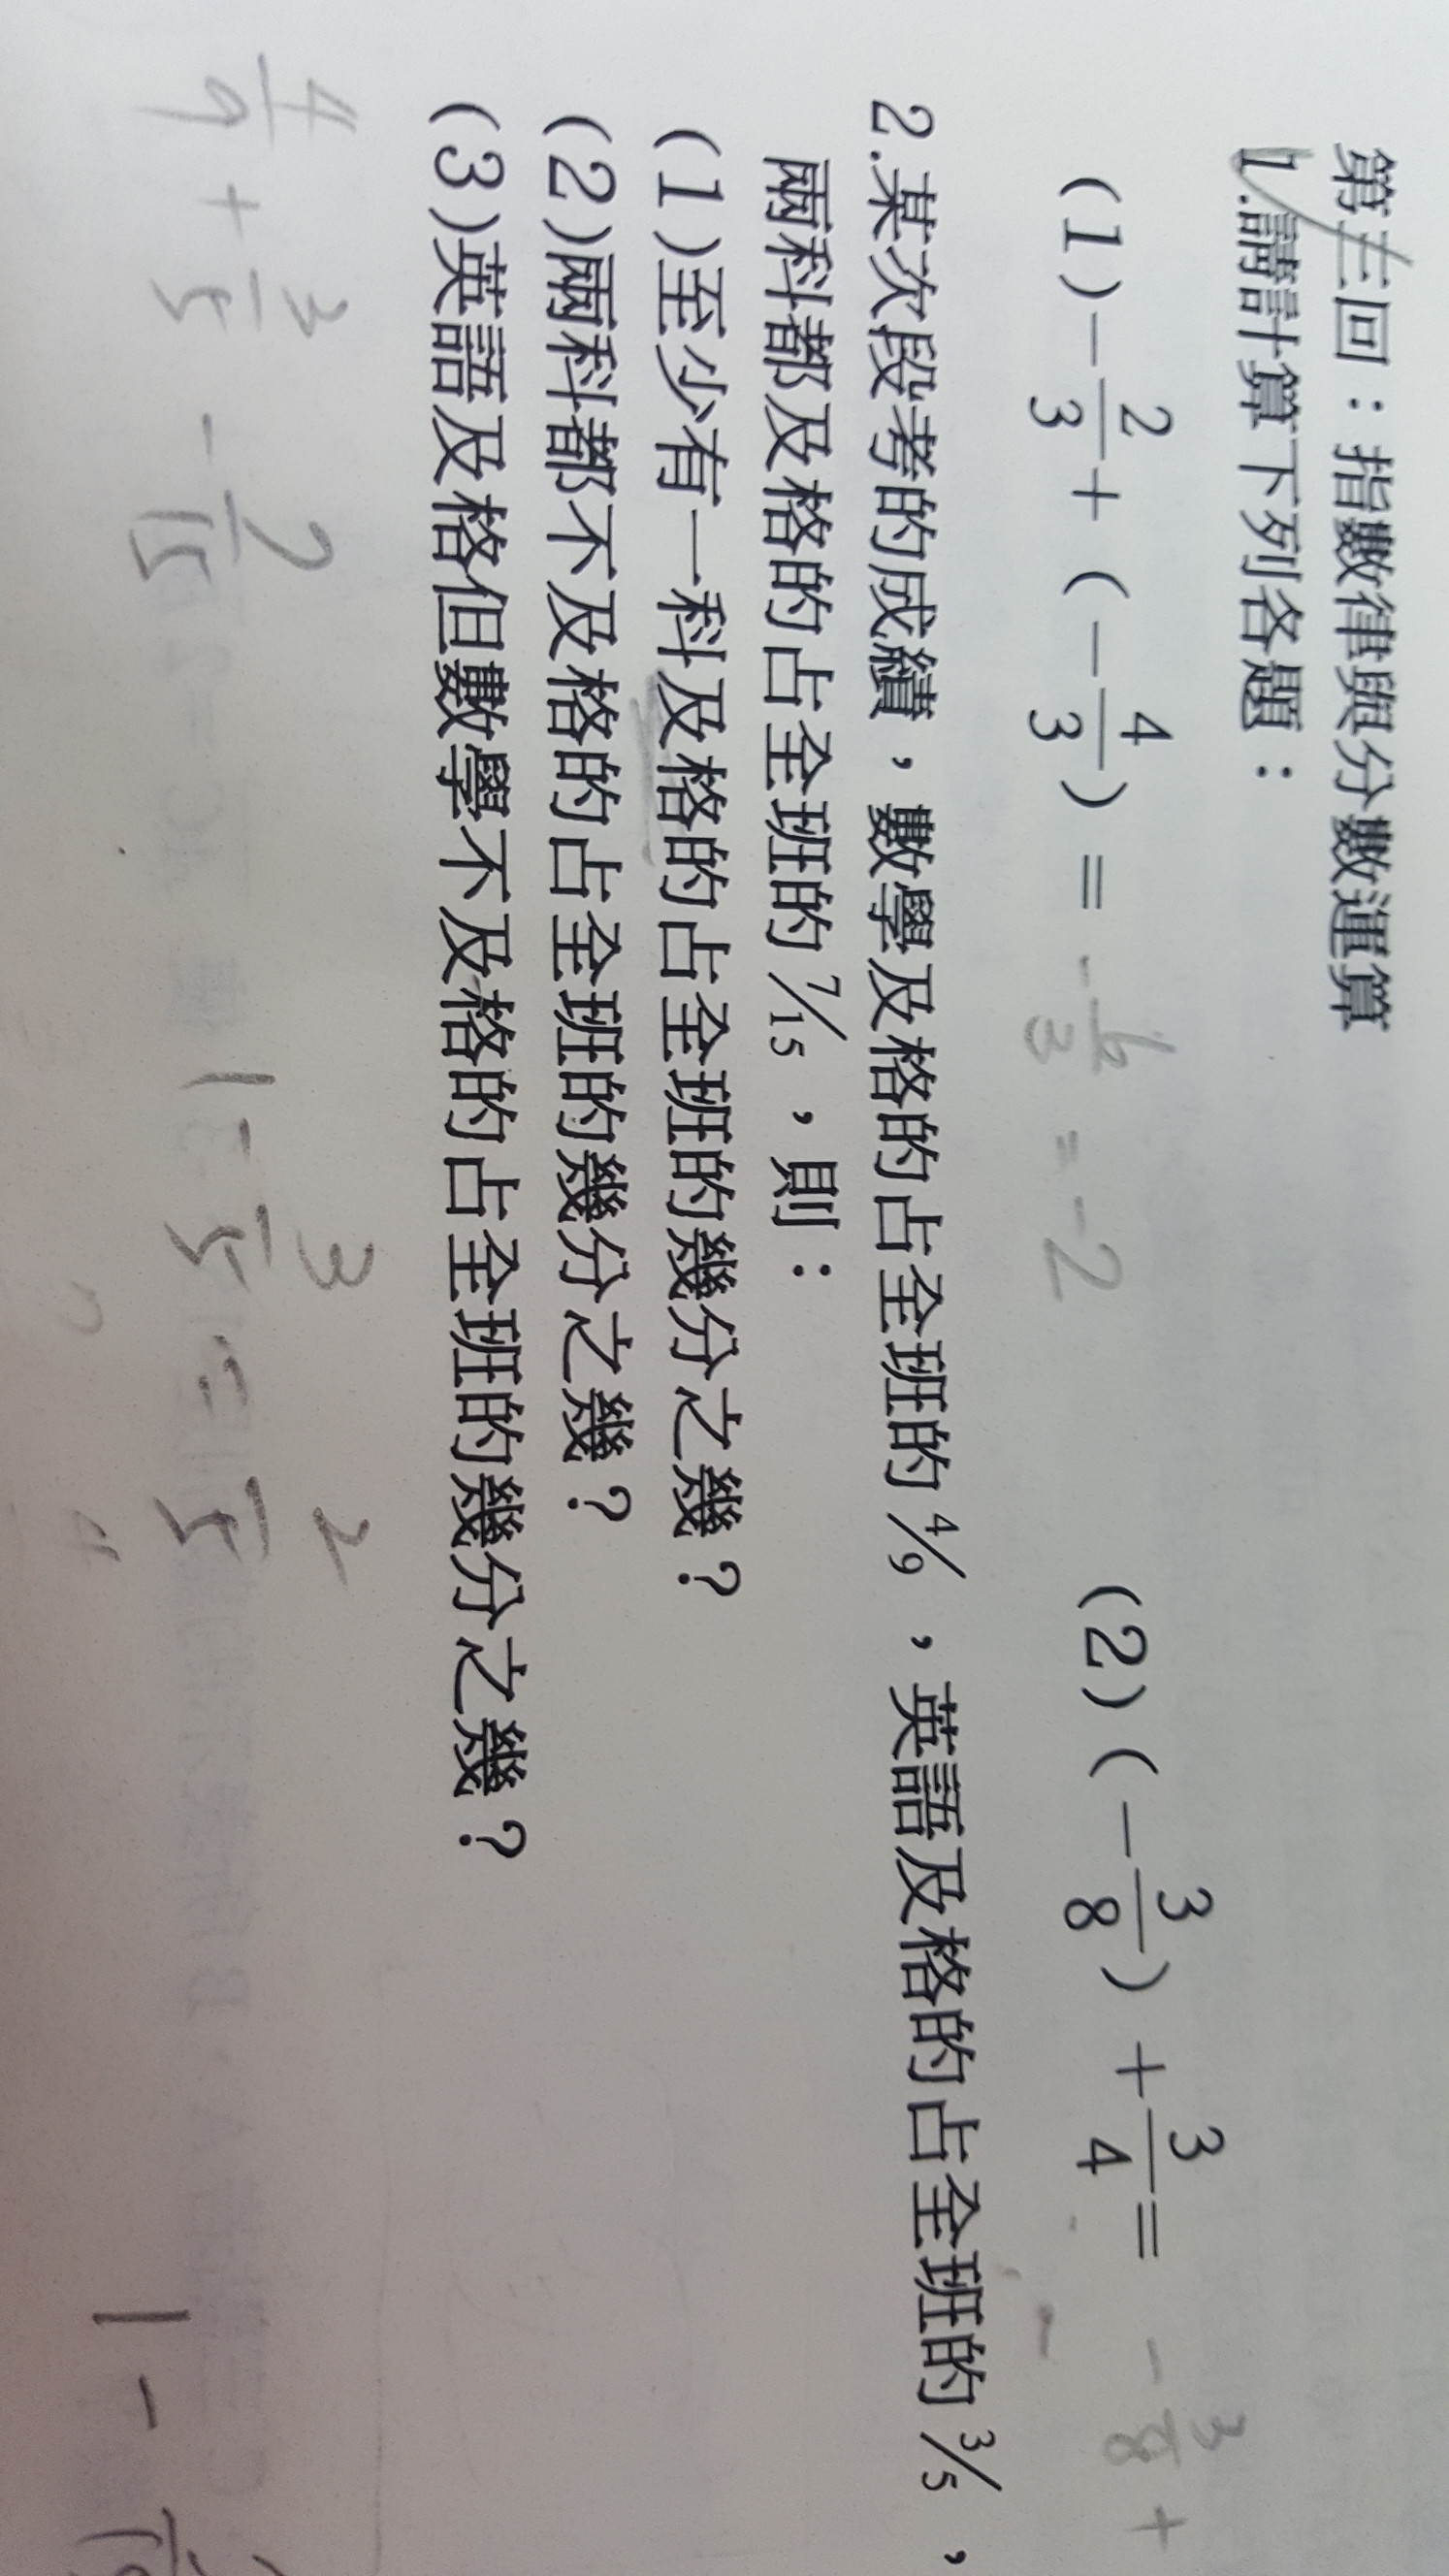 第三回：指數律與分數運算
1.請計算下列各題：
(1)-2/3+(-4/3)= -6/3 = -2 (2)(-3/8)+3/4= -3/8 +
2.某次段考的成績，數學及格的占全班的4/9，英語及格的占全班的3/5，
兩科都及格的占全班的7/15，則：
(1)至少有一科及格的占全班的幾分之幾？
(2)兩科都不及格的占全班的幾分之幾？
(3)英語及格但數學不及格的占全班的幾分之幾？
4/9 + 3/5 - 7/15 1 - 3/5 = 2/5
1 -